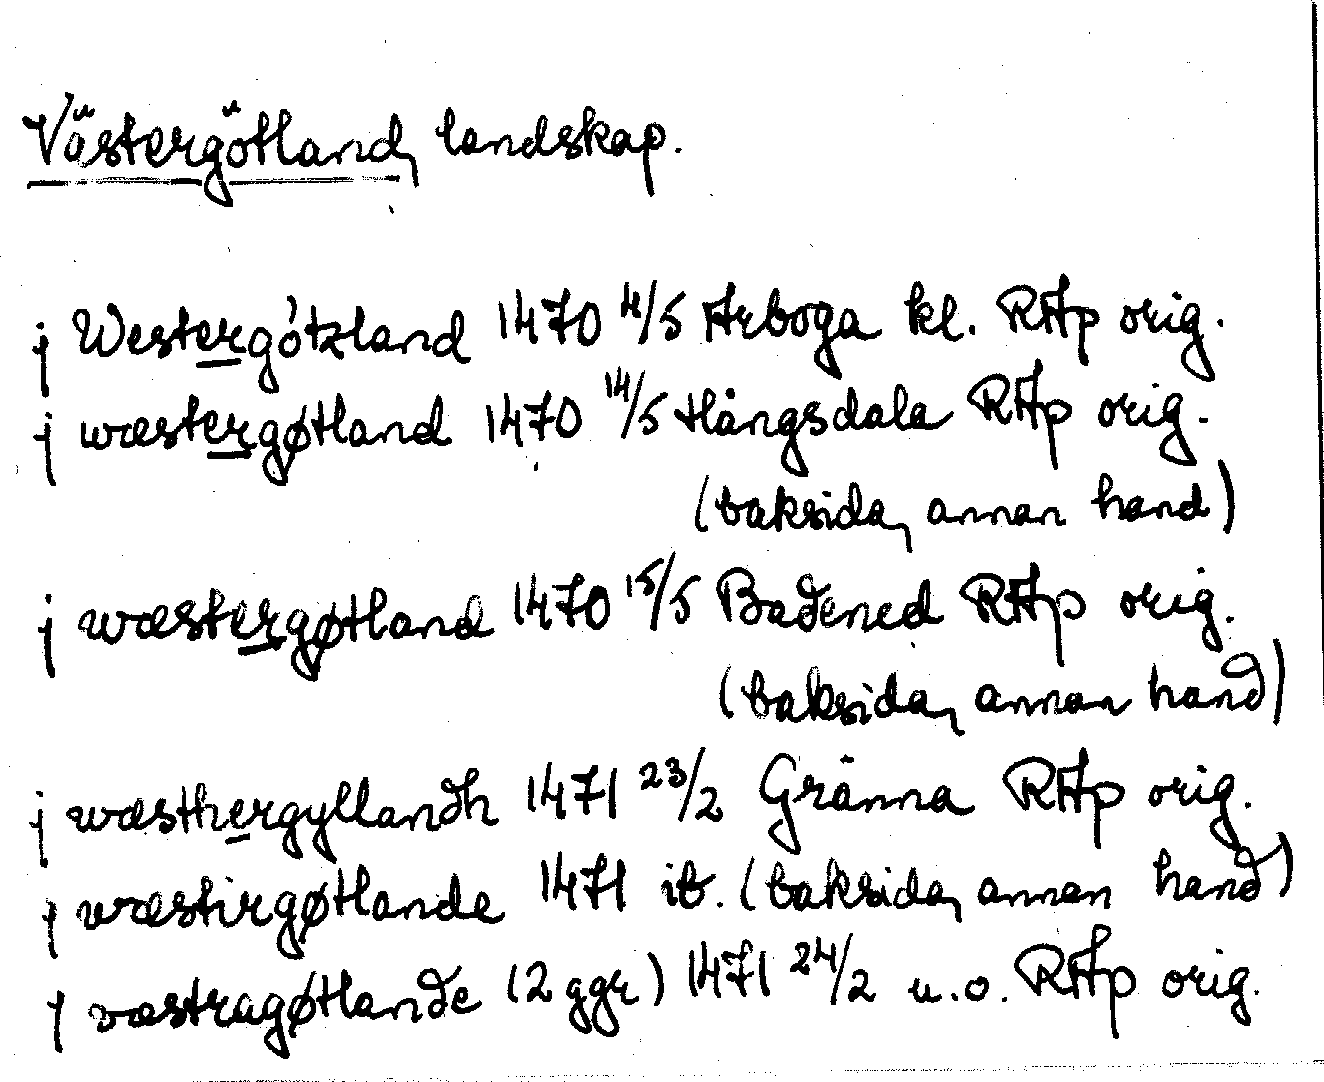 Västergötland, landskap.
j Westergötzland 1470 4/5 Arboga kl. RAp orig.
j wæstergøtland 1470 14/5 Hångsdala RAp orig.
(baksida, annan hand)
j wæstergøtland 1470 15/5 Badened RAp orig.
(baksida, annan hand)
j wæsthergyllandh 1471 23/2 Gränna RAp orig.
j væstirgøtlande 1471 ib. (baksida, annan hand)
j væstragøtlande (2 ggr) 1471 24/2 u.o. RAp orig.